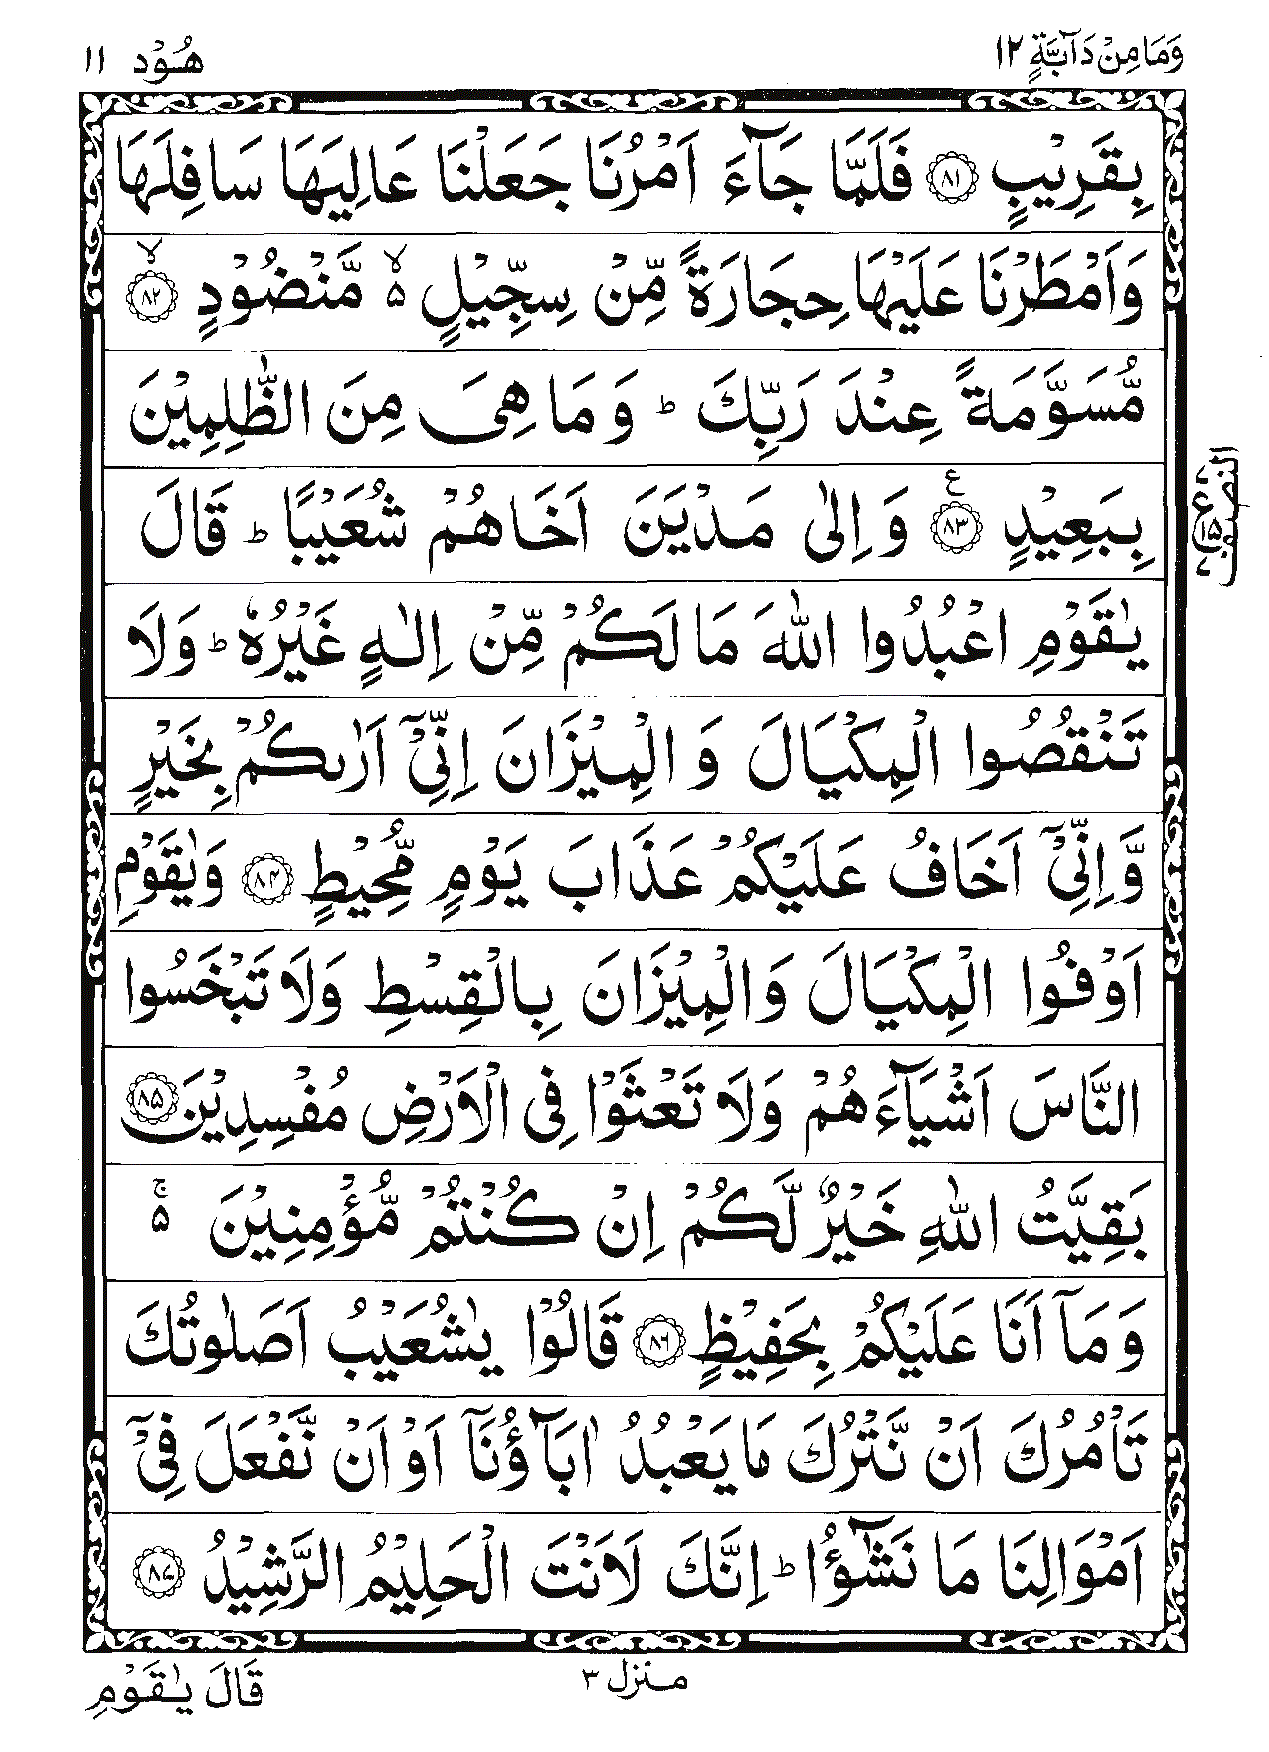 وَمَا مِنْ دَآبَّةٍ ١٢
هُوْد ١١
بِقَرِيْبٍ ﴿٨١﴾ فَلَمَّا جَآءَ اَمْرُنَا جَعَلْنَا عَالِيَهَا سَافِلَهَا
وَاَمْطَرْنَا عَلَيْهَا حِجَارَةً مِّنْ سِجِّيْلٍ ۙ۵ مَّنْضُوْدٍ ﴿٨٢﴾ۙ
مُّسَوَّمَةً عِنْدَ رَبِّكَ ؕ وَ مَا هِىَ مِنَ الظّٰلِمِيْنَ
بِبَعِيْدٍ ﴿٨٣﴾ ع وَ اِلٰى مَدْيَنَ اَخَاهُمْ شُعَيْبًا ؕ قَالَ
يٰقَوْمِ اعْبُدُوا اللّٰهَ مَا لَكُمْ مِّنْ اِلٰهٍ غَيْرُهٗ ؕ وَلَا
تَنْقُصُوا الْمِكْيَالَ وَ الْمِيْزَانَ اِنِّىْٓ اَرٰىكُمْ بِخَيْرٍ
وَّاِنِّىْٓ اَخَافُ عَلَيْكُمْ عَذَابَ يَوْمٍ مُّحِيْطٍ ﴿٨٤﴾ وَيٰقَوْمِ
اَوْفُوا الْمِكْيَالَ وَالْمِيْزَانَ بِالْقِسْطِ وَلَا تَبْخَسُوا
النَّاسَ اَشْيَآءَهُمْ وَلَا تَعْثَوْا فِى الْاَرْضِ مُفْسِدِيْنَ ﴿٨٥﴾
بَقِيَّتُ اللّٰهِ خَيْرٌ لَّكُمْ اِنْ كُنْتُمْ مُّؤْمِنِيْنَ ۚ۵
وَ مَآ اَنَا عَلَيْكُمْ بِحَفِيْظٍ ﴿٨٦﴾ قَالُوْا يٰشُعَيْبُ اَصَلٰوتُكَ
تَاْمُرُكَ اَنْ نَّتْرُكَ مَا يَعْبُدُ اٰبَآؤُنَآ اَوْ اَنْ نَّفْعَلَ فِىْٓ
اَمْوَالِنَا مَا نَشٰٓؤُا ؕ اِنَّكَ لَاَنْتَ الْحَلِيْمُ الرَّشِيْدُ ﴿٨٧﴾
النصف
ع ١٥
منزل ٣
قَالَ يٰقَوْمِ